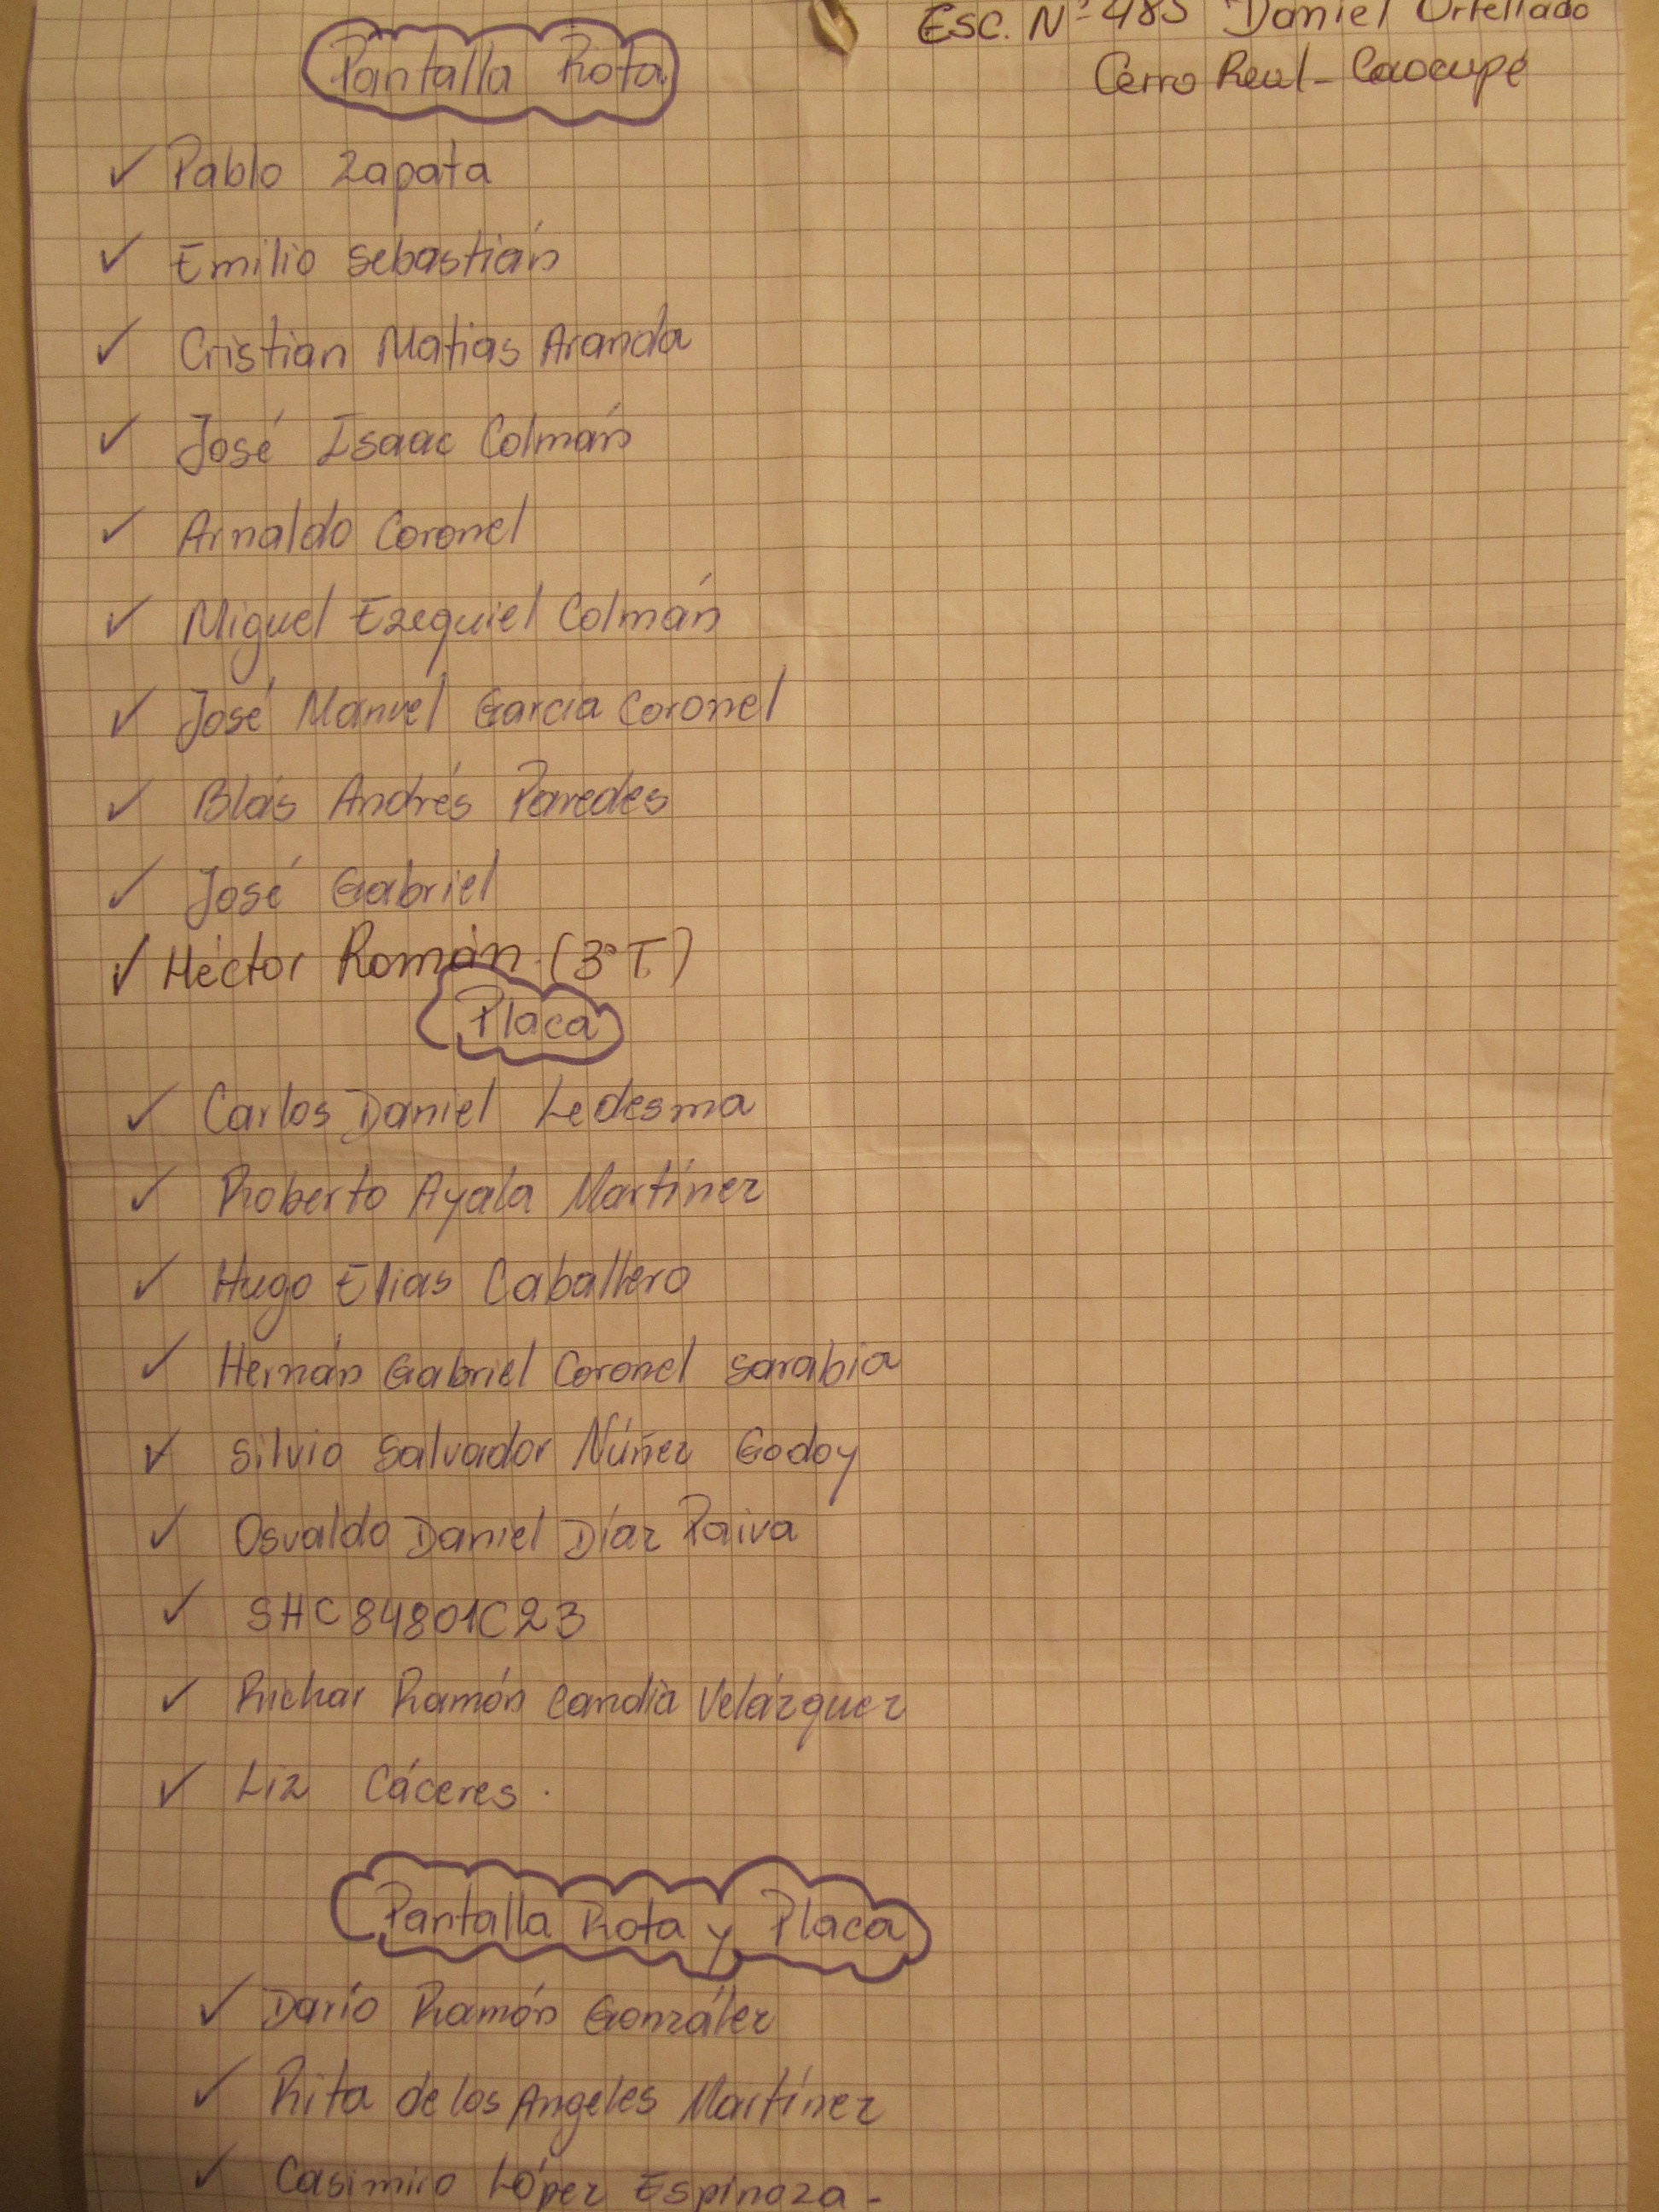 Esc. Nº 485 Daniel Ortellado
Cerro Real - Caacupé
Pantalla Rota
✓ Pablo Zapata
✓ Emilio Sebastián
✓ Cristian Matias Aranda
✓ José Isaac Colmán
✓ Arnaldo Coronel
✓ Miguel Ezequiel Colmán
✓ José Manuel Garcia Coronel
✓ Blás Andrés Paredes
✓ José Gabriel
✓ Héctor Román. (3º T.)
Placa
✓ Carlos Daniel Ledesma
✓ Roberto Ayala Martínez
✓ Hugo Elias Caballero
✓ Hernán Gabriel Coronel Sarabia
✓ Silvio Salvador Núñez Godoy
✓ Osvaldo Daniel Díaz Paiva
✓ SHC84801C23
✓ Richar Ramón Candia Velázquez
✓ Liz Cáceres.
Pantalla Rota y Placa
✓ Darío Ramón González
✓ Rita de los Angeles Martínez
✓ Casimiro López Espinoza -